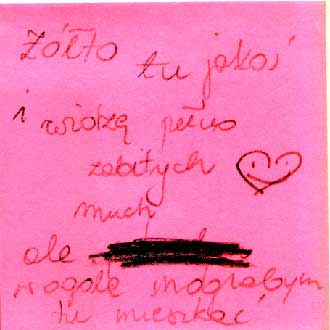 Żółto
tu jakoś
i widzę pełno
zabitych
much
ale
wogóle mogłabym
tu mieszkać